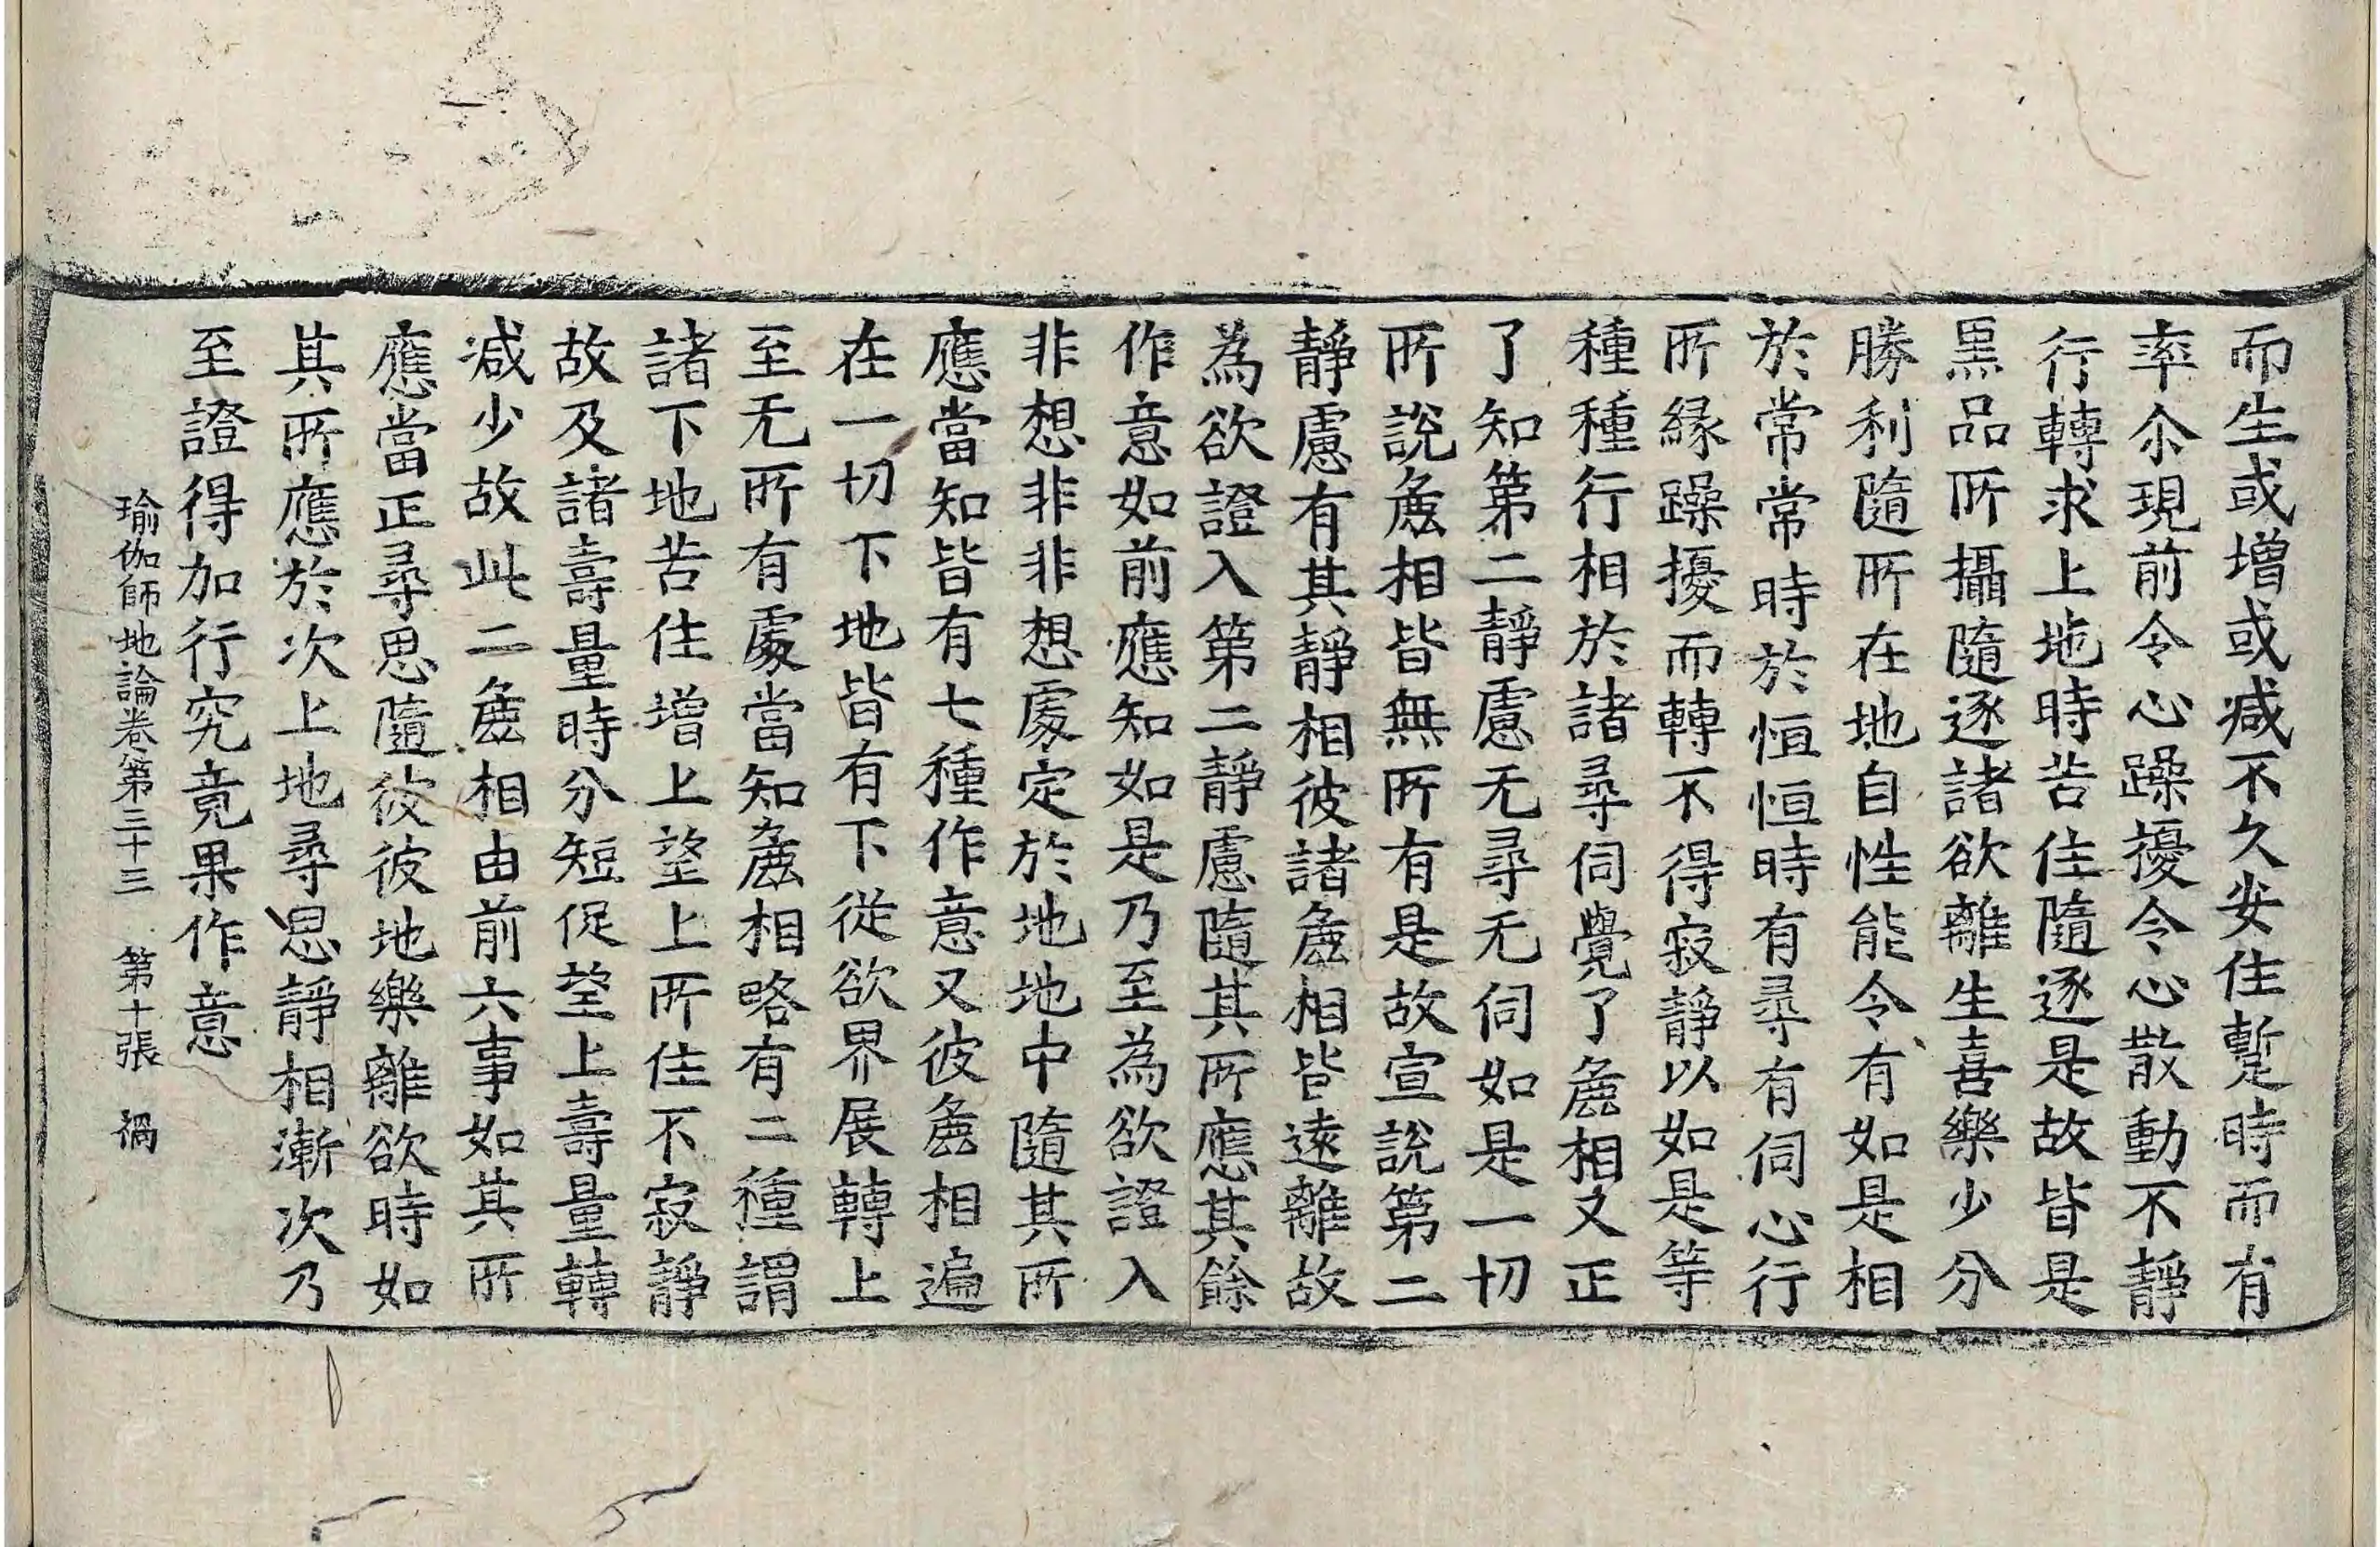 而生或增或减不久安住蹔時而有
率尒現前令心躁擾令心散動不靜
行轉求上地時苦住隨逐是故皆是
黒品所攝隨逐諸欲離生喜樂少分
勝利隨所在地自性能令有如是相
於常常時於恒恒時有尋有伺心行
所縁躁擾而轉不得寂靜以如是等
種種行相於諸尋伺覺了麁相又正
了知第二靜慮无尋无伺如是一切
所說麁相皆無所有是故宣說第二
靜慮有其靜相彼諸麁相皆遠離故
為欲證入第二靜慮隨其所應其餘
作意如前應知如是乃至為欲證入
非想非非想處定於地地中隨其所
應當知皆有七種作意又彼麁相遍
在一切下地皆有下從欲界展轉上
至无所有處當知麁相略有二種謂
諸下地苦住增上望上所住不寂靜
故及諸壽量時分短促望上壽量轉
减少故此二麁相由前六事如其所
應當正尋思隨彼彼地樂離欲時如
其所應於次上地尋思靜相漸次乃
至證得加行究竟果作意
瑜伽師地論卷第三十三 第十張 禍